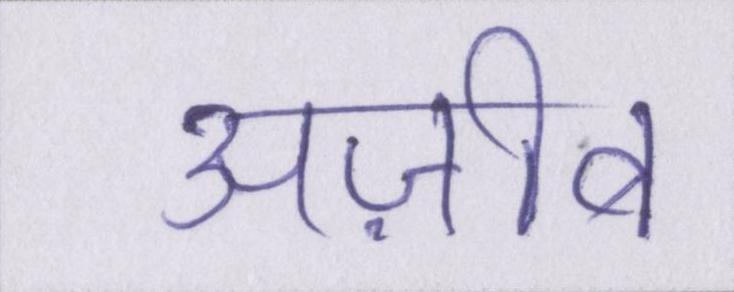 अज़ीब